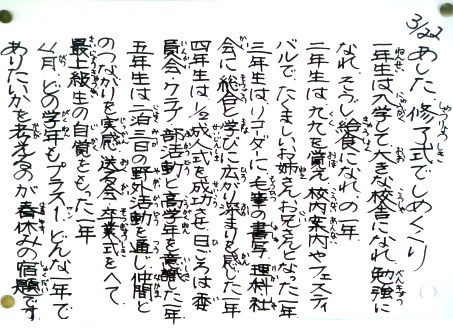 3/22 あした、修了式でしめくくり
一年生は入学して大きな校舎になれ、勉強に
なれ、そうじ・給食になれ、の一年
二年生は九九を覚え、校内案内やフェスティ
バルで、たくましいお姉さん、お兄さんとなった一年
三年生はリコーダーに、毛筆の書写、理科・社
会に総合と学びに広がり深まりを感じた一年
四年生は1/2成人式を成功させ、日ごろは委
員会・クラブ・部活動と高学年を意識した一年
五年生は二泊三日の野外活動を通し、仲間と
のつながりを実感、送る会、卒業式をへて、
最上級生の自覚をもった一年
4月、どの学年もプラス1、どんな一年で
ありたいかを考えるのが春休みの宿題です